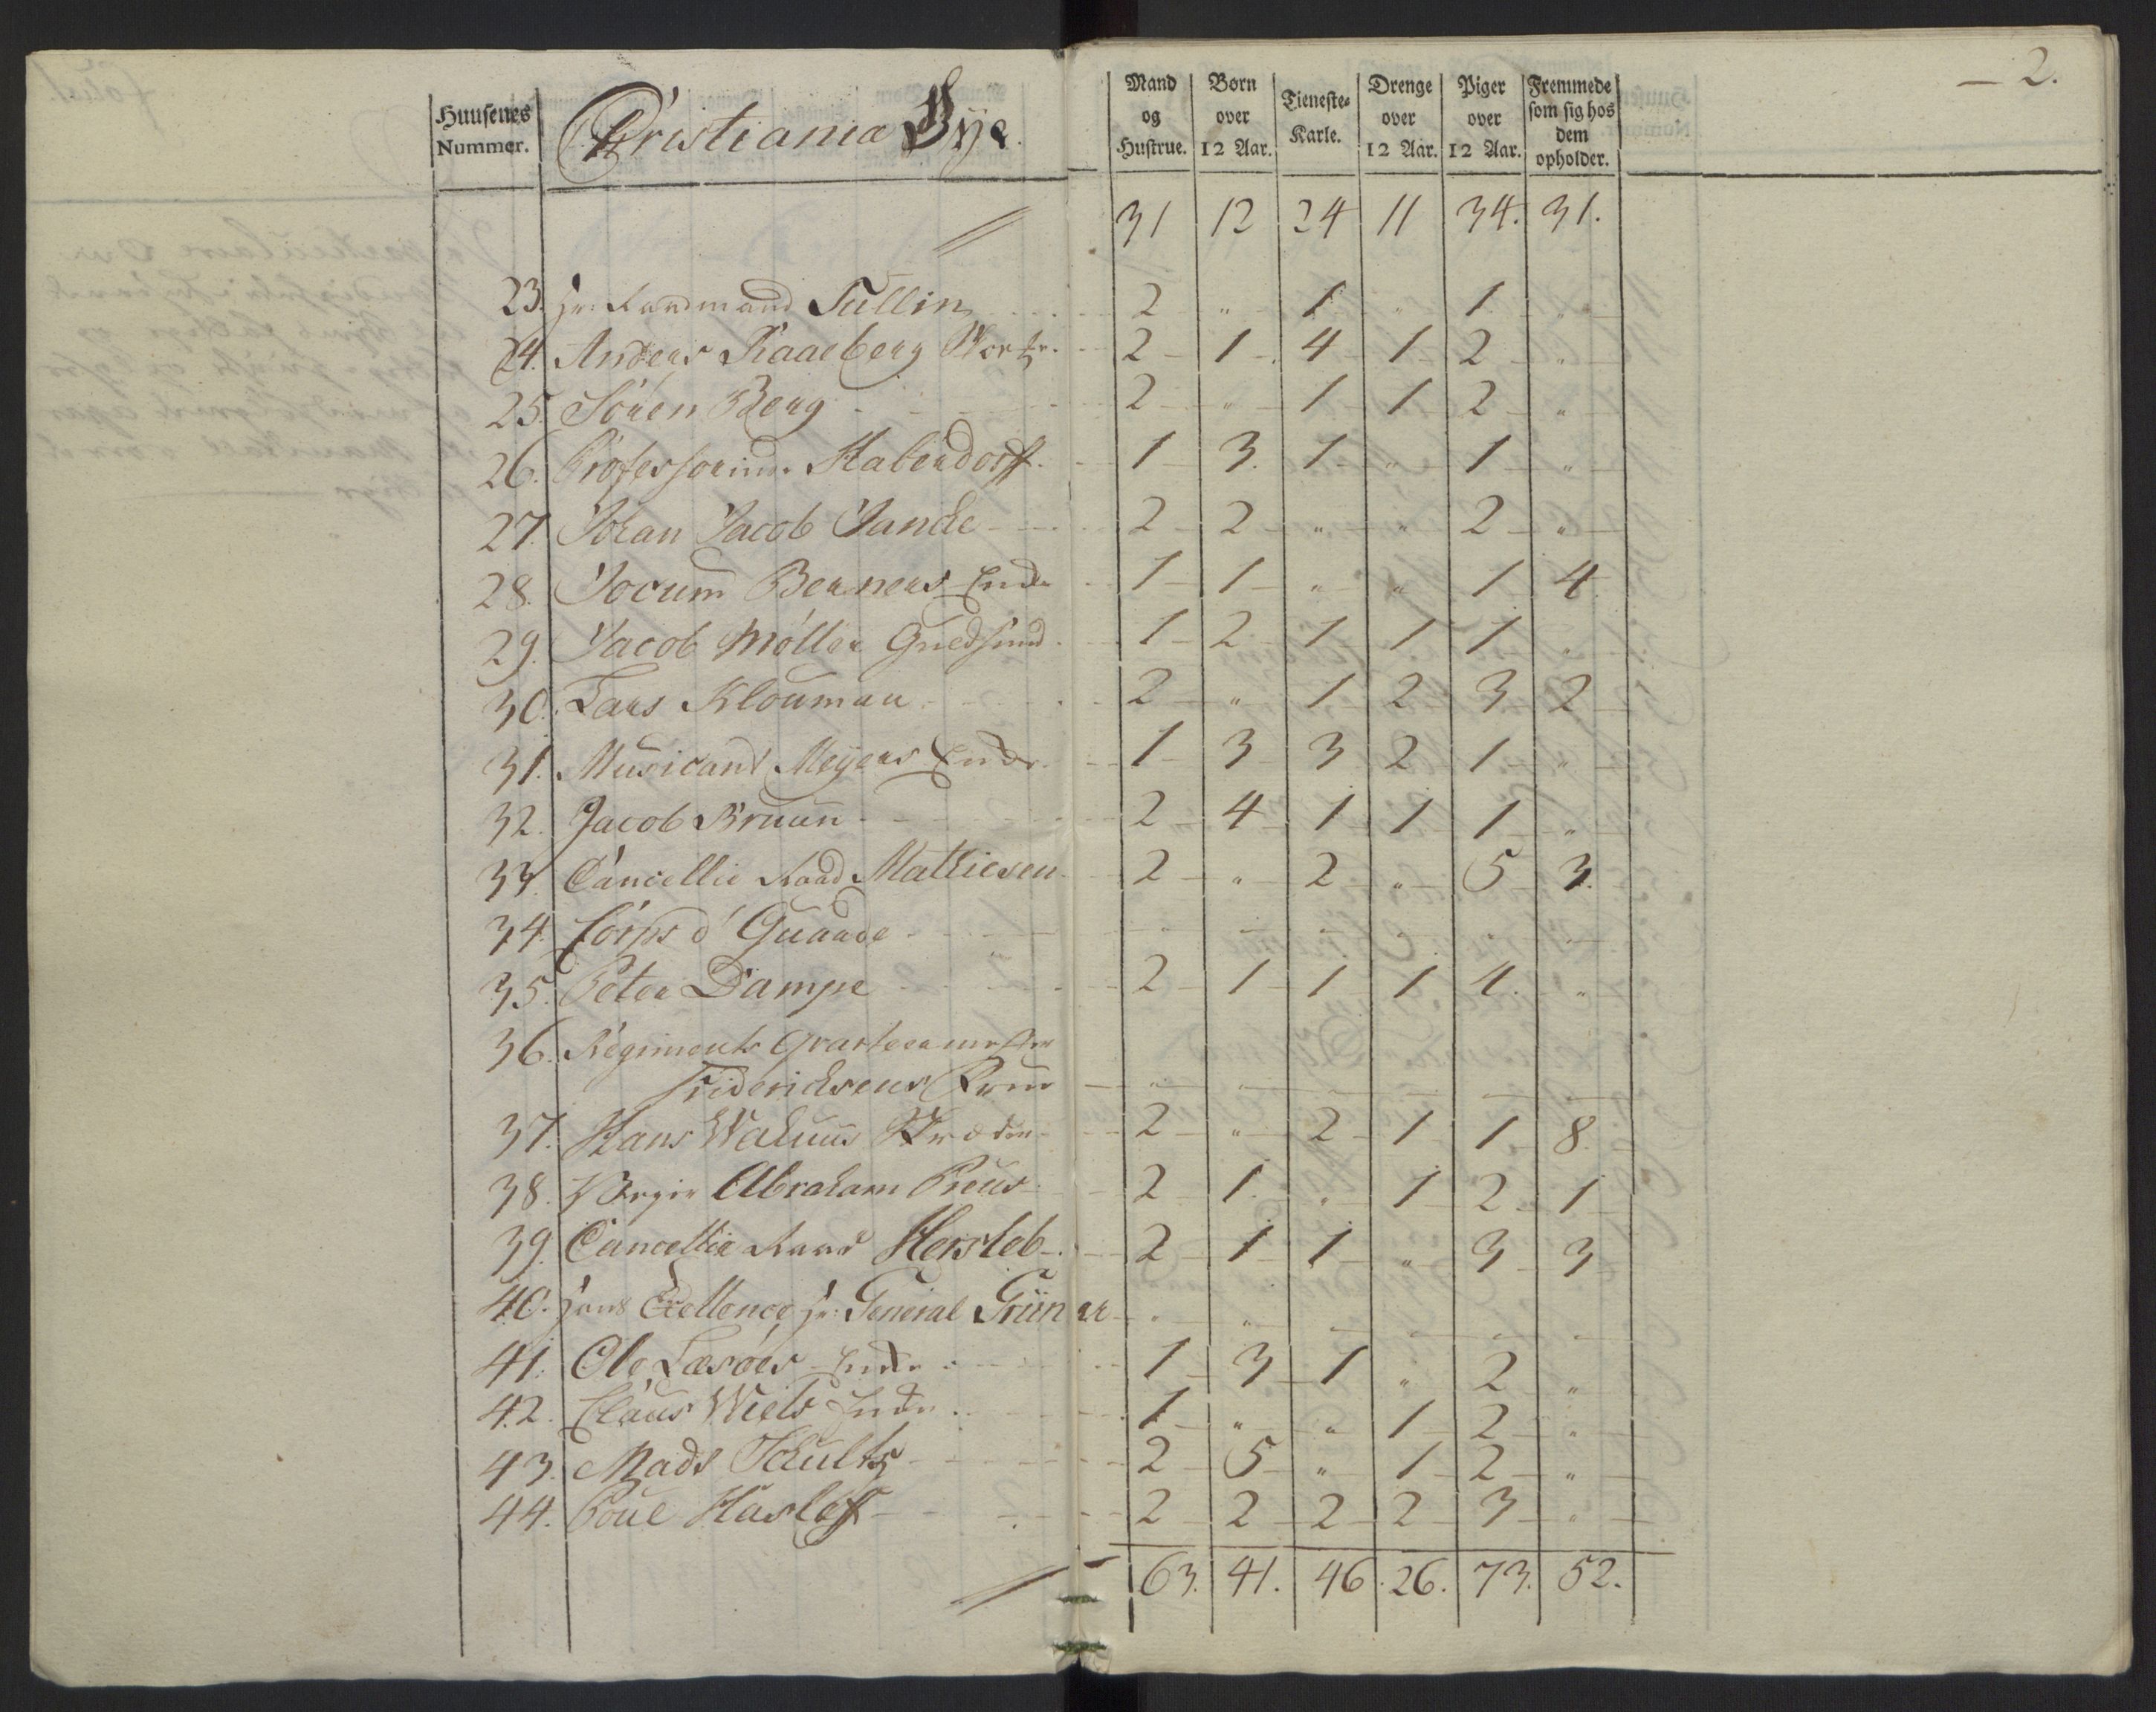 2.
Huusenes Nummer. Christiania Bye. Mand og Hustrue. Børn over 12 Aar. Tieneste-Karle. Drenge over 12 Aar. Piger over 12 Aar. Fremmede som sig hos dem opholder.
31 12 24 11 34. 31.
23. Hr: Raadmand Tullin 2 " 1 " 1 "
24. Anders Kaaeberg 2 1 4 1 2 "
25. Sören Berg 2 " 1 1 2 "
26. Haberdorff 1 3. 1 " 1 "
27. Johan Jacob Jancke 2 2 " " 2 "
28. Jocum Berners Enke 1 1 " " 1 4
29. Jacob Møller 1 2 1 1 1 "
30. Lars Klouman 2 " 1 2 3 2
31. Musicant Meyers Enke 1 3 3 2 1 "
32. Jacob Bruun 2 4 1 1 1 "
33. Cancellie Raad Mathiesen 2 " 2 " 5 3.
34. Corps d' Guarde " " " " " "
35. Peter Dampe 2 1 1 1 4. "
36. Regiments Qvarteermester
Fridericksens " "
37. Hans 2 " 2 1 1 8.
38. Abraham Preus 2 1. " 1 2 1
39. Cancellie Raad Hersleb 2 1 1 " 3 3
40. Hans Exellence Hr: General Grüner " "
41. Ole Læsöes Enke 1 3 1 " 2 "
42. Claus Wiels Enke 1 " " 1 2 "
43. Mads Schultz 2 5 " 1 2 "
44. Poul Hasloff 2 2 2 2 3 "
63. 41. 46. 26. 73. 52.